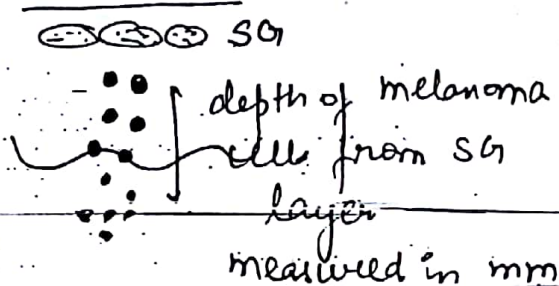 SG
depth of melanoma
cells from SG
layer
measured in mm